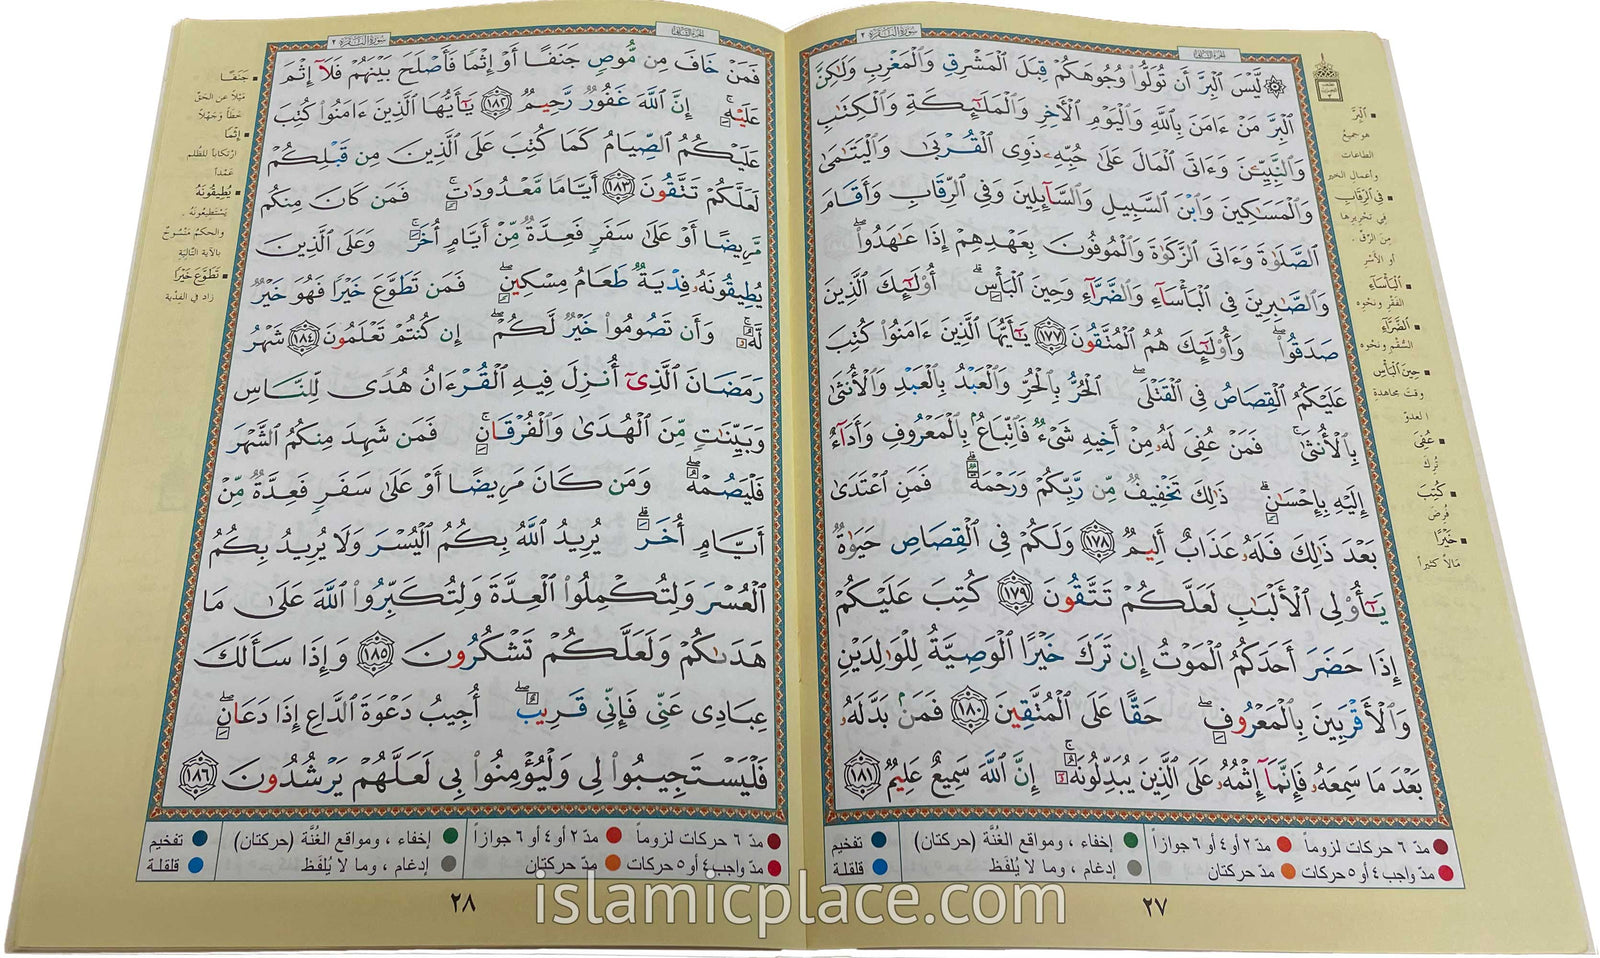 سورة البقرة ٢
الجزء الثاني
۞ لَّيْسَ ٱلْبِرَّ أَن تُوَلُّوا۟ وُجُوهَكُمْ قِبَلَ ٱلْمَشْرِقِ وَٱلْمَغْرِبِ وَلَٰكِنَّ
ٱلْبِرَّ مَنْ ءَامَنَ بِٱللَّهِ وَٱلْيَوْمِ ٱلْأَخِرِ وَٱلْمَلَٰٓئِكَةِ وَٱلْكِتَٰبِ
وَٱلنَّبِيِّۦنَ وَءَاتَى ٱلْمَالَ عَلَىٰ حُبِّهِۦ ذَوِى ٱلْقُرْبَىٰ وَٱلْيَتَٰمَىٰ
وَٱلْمَسَٰكِينَ وَٱبْنَ ٱلسَّبِيلِ وَٱلسَّآئِلِينَ وَفِى ٱلرِّقَابِ وَأَقَامَ
ٱلصَّلَوٰةَ وَءَاتَى ٱلزَّكَوٰةَ وَٱلْمُوفُونَ بِعَهْدِهِمْ إِذَا عَٰهَدُوا۟ۖ
وَٱلصَّٰبِرِينَ فِى ٱلْبَأْسَآءِ وَٱلضَّرَّآءِ وَحِينَ ٱلْبَأْسِۗ أُو۟لَٰٓئِكَ ٱلَّذِينَ
صَدَقُوا۟ۖ وَأُو۟لَٰٓئِكَ هُمُ ٱلْمُتَّقُونَ ١٧٧ يَٰٓأَيُّهَا ٱلَّذِينَ ءَامَنُوا۟ كُتِبَ
عَلَيْكُمُ ٱلْقِصَاصُ فِى ٱلْقَتْلَىۖ ٱلْحُرُّ بِٱلْحُرِّ وَٱلْعَبْدُ بِٱلْعَبْدِ وَٱلْأُنثَىٰ
بِٱلْأُنثَىٰۚ فَمَنْ عُفِىَ لَهُۥ مِنْ أَخِيهِ شَىْءٌ فَٱتِّبَاعٌۢ بِٱلْمَعْرُوفِ وَأَدَآءٌ
إِلَيْهِ بِإِحْسَٰنٍۗ ذَٰلِكَ تَخْفِيفٌ مِّن رَّبِّكُمْ وَرَحْمَةٌۗ فَمَنِ ٱعْتَدَىٰ
بَعْدَ ذَٰلِكَ فَلَهُۥ عَذَابٌ أَلِيمٌ ١٧٨ وَلَكُمْ فِى ٱلْقِصَاصِ حَيَوٰةٌ
يَٰٓأُو۟لِى ٱلْأَلْبَٰبِ لَعَلَّكُمْ تَتَّقُونَ ١٧٩ كُتِبَ عَلَيْكُمْ
إِذَا حَضَرَ أَحَدَكُمُ ٱلْمَوْتُ إِن تَرَكَ خَيْرًا ٱلْوَصِيَّةُ لِلْوَٰلِدَيْنِ
وَٱلْأَقْرَبِينَ بِٱلْمَعْرُوفِۖ حَقًّا عَلَى ٱلْمُتَّقِينَ ١٨٠ فَمَنۢ بَدَّلَهُۥ
بَعْدَ مَا سَمِعَهُۥ فَإِنَّمَآ إِثْمُهُۥ عَلَى ٱلَّذِينَ يُبَدِّلُونَهُۥٓۚ إِنَّ ٱللَّهَ سَمِيعٌ عَلِيمٌ ١٨١
■ ٱلْبِرَّ
هو جميعُ
الطاعات
وأعمال الخير
■ فِى ٱلرِّقَابِ
في تحريرِها
مِنَ الرِّقِّ
أو الأسْر
■ ٱلْبَأْسَآءِ
الفقر ونحوِه
■ ٱلضَّرَّآءِ
السُّقْمِ ونحوِه
■ حِينَ ٱلْبَأْسِ
وقتَ مجاهدةِ
العدوّ
■ عُفِىَ
تُرِكَ
■ كُتِبَ
فُرِضَ
■ خَيْرًا
مالاً كثيراً
مدّ ٦ حركات لزوماً مدّ ٢ أو ٤ أو ٦ جوازاً إخفاء ، ومواقع الغُنَّة (حركتان) تفخيم
مدّ واجب ٤ أو ٥ حركات مدّ حركتان إدغام ، وما لا يُلفَظ قلقلة
٢٧
الجزء الثاني
سورة البقرة ٢
فَمَنْ خَافَ مِن مُّوصٍ جَنَفًا أَوْ إِثْمًا فَأَصْلَحَ بَيْنَهُمْ فَلَآ إِثْمَ
عَلَيْهِۚ إِنَّ ٱللَّهَ غَفُورٌ رَّحِيمٌ ١٨٢ يَٰٓأَيُّهَا ٱلَّذِينَ ءَامَنُوا۟ كُتِبَ
عَلَيْكُمُ ٱلصِّيَامُ كَمَا كُتِبَ عَلَى ٱلَّذِينَ مِن قَبْلِكُمْ
لَعَلَّكُمْ تَتَّقُونَ ١٨٣ أَيَّامًا مَّعْدُودَٰتٍۚ فَمَن كَانَ مِنكُم
مَّرِيضًا أَوْ عَلَىٰ سَفَرٍ فَعِدَّةٌ مِّنْ أَيَّامٍ أُخَرَۚ وَعَلَى ٱلَّذِينَ
يُطِيقُونَهُۥ فِدْيَةٌ طَعَامُ مِسْكِينٍۖ فَمَن تَطَوَّعَ خَيْرًا فَهُوَ خَيْرٌ
لَّهُۥۚ وَأَن تَصُومُوا۟ خَيْرٌ لَّكُمْۖ إِن كُنتُمْ تَعْلَمُونَ ١٨٤ شَهْرُ
رَمَضَانَ ٱلَّذِىٓ أُنزِلَ فِيهِ ٱلْقُرْءَانُ هُدًى لِّلنَّاسِ
وَبَيِّنَٰتٍ مِّنَ ٱلْهُدَىٰ وَٱلْفُرْقَانِۚ فَمَن شَهِدَ مِنكُمُ ٱلشَّهْرَ
فَلْيَصُمْهُۖ وَمَن كَانَ مَرِيضًا أَوْ عَلَىٰ سَفَرٍ فَعِدَّةٌ مِّنْ
أَيَّامٍ أُخَرَۗ يُرِيدُ ٱللَّهُ بِكُمُ ٱلْيُسْرَ وَلَا يُرِيدُ بِكُمُ
ٱلْعُسْرَ وَلِتُكْمِلُوا۟ ٱلْعِدَّةَ وَلِتُكَبِّرُوا۟ ٱللَّهَ عَلَىٰ مَا
هَدَىٰكُمْ وَلَعَلَّكُمْ تَشْكُرُونَ ١٨٥ وَإِذَا سَأَلَكَ
عِبَادِى عَنِّى فَإِنِّى قَرِيبٌۖ أُجِيبُ دَعْوَةَ ٱلدَّاعِ إِذَا دَعَانِۖ
فَلْيَسْتَجِيبُوا۟ لِى وَلْيُؤْمِنُوا۟ بِى لَعَلَّهُمْ يَرْشُدُونَ ١٨٦
■ جَنَفًا
مَيْلاً عن الحَقّ
خطأً وجهلاً
■ إِثْمًا
ارتكاباً للظُّلمِ
عَمْداً
■ يُطِيقُونَهُ
يَسْتَطيعُونَهُ .
والحكمُ مَنْسوخٌ
بالآية التالِيَةِ
■ تَطَوَّعَ خَيْرًا
زاد في الفِدْية
مدّ ٦ حركات لزوماً مدّ ٢ أو ٤ أو ٦ جوازاً إخفاء ، ومواقع الغُنَّة (حركتان) تفخيم
مدّ واجب ٤ أو ٥ حركات مدّ حركتان إدغام ، وما لا يُلفَظ قلقلة
٢٨
islamicplace.com